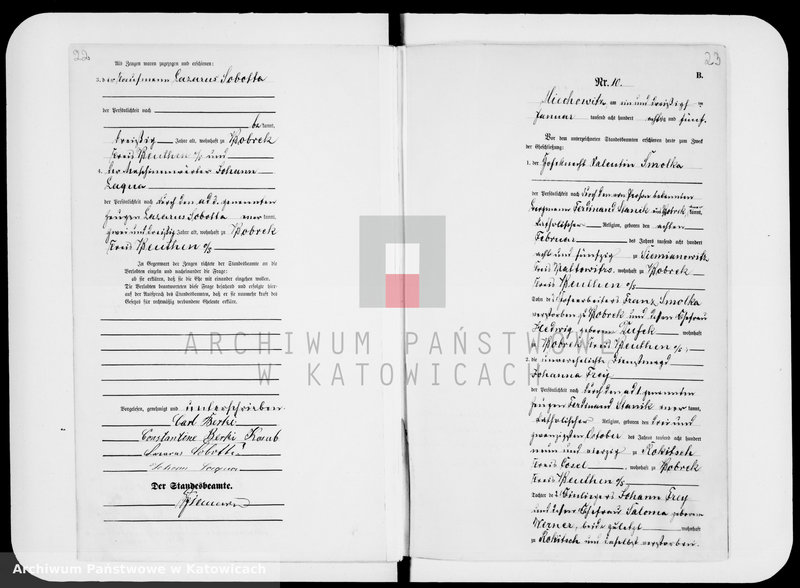 22
Als Zeugen waren zugezogen und erschienen:
3. der Kaufmann Lazarus Sobotta
der Persönlichkeit nach
be kannt,
dreißig Jahre alt, wohnhaft zu Bobrek
Kreis Beuthen o/s und
4. der Maschinenwärter Johann
Laqua
der Persönlichkeit nach durch den ad 3. genannten
Zeugen Lazarus Sobotta aner kannt,
zwei und dreißig Jahre alt, wohnhaft zu Bobrek
Kreis Beuthen o/s
In Gegenwart der Zeugen richtete der Standesbeamte an die
Verlobten einzeln und nacheinander die Frage:
ob sie erklären, daß sie die Ehe mit einander eingehen wollen.
Die Verlobten beantworteten diese Frage bejahend und erfolgte hier-
auf der Ausspruch des Standesbeamten, daß er sie nunmehr kraft des
Gesetzes für rechtmäßig verbundene Eheleute erkläre.
Vorgelesen, genehmigt und unterschrieben
Carl Birke
Constantine Birke
Lazarus Sobotta
Johann Laqua
Der Standesbeamte.
23
B.
Nr. 10.
Miechowitz am ein und dreißigsten
Januar tausend acht hundert achtzig und fünf.
Vor dem unterzeichneten Standesbeamten erschienen heute zum Zweck
der Eheschließung:
1. der Valentin Smolka
der Persönlichkeit nach durch den von Person bekannten
Bergmann Ferdinand Stanik aus Bobrek, aner kannt,
katholischer Religion, geboren den achten
Februar des Jahres tausend acht hundert
acht und fünfzig zu Siemianowitz
Kreis Kattowitz, wohnhaft zu Bobrek
Kreis Beuthen o/s
Sohn des Franz Smolka
verstorben zu Bobrek und dessen Ehefrau
Hedwig geborenen wohnhaft
zu Bobrek Kreis Beuthen o/s
2. die unverehelichte Dienstmagd
Johanna Frey
der Persönlichkeit nach durch den ad 1 genannten
Zeugen Ferdinand Stanik aner kannt,
katholischer Religion, geboren den drei und
zwanzigsten October des Jahres tausend acht hundert
neun und vierzig zu Rokitsch
Kreis Cosel, wohnhaft zu Bobrek
Kreis Beuthen o/s
Tochter des Einliegers Johann Frey
und dessen Ehefrau Saloma geborenen
beide zuletzt wohnhaft
zu Rokitsch und daselbst verstorben.
ARCHIWUM PAŃSTWOWE
W KATOWICACH
Archiwum Państwowe w Katowicach